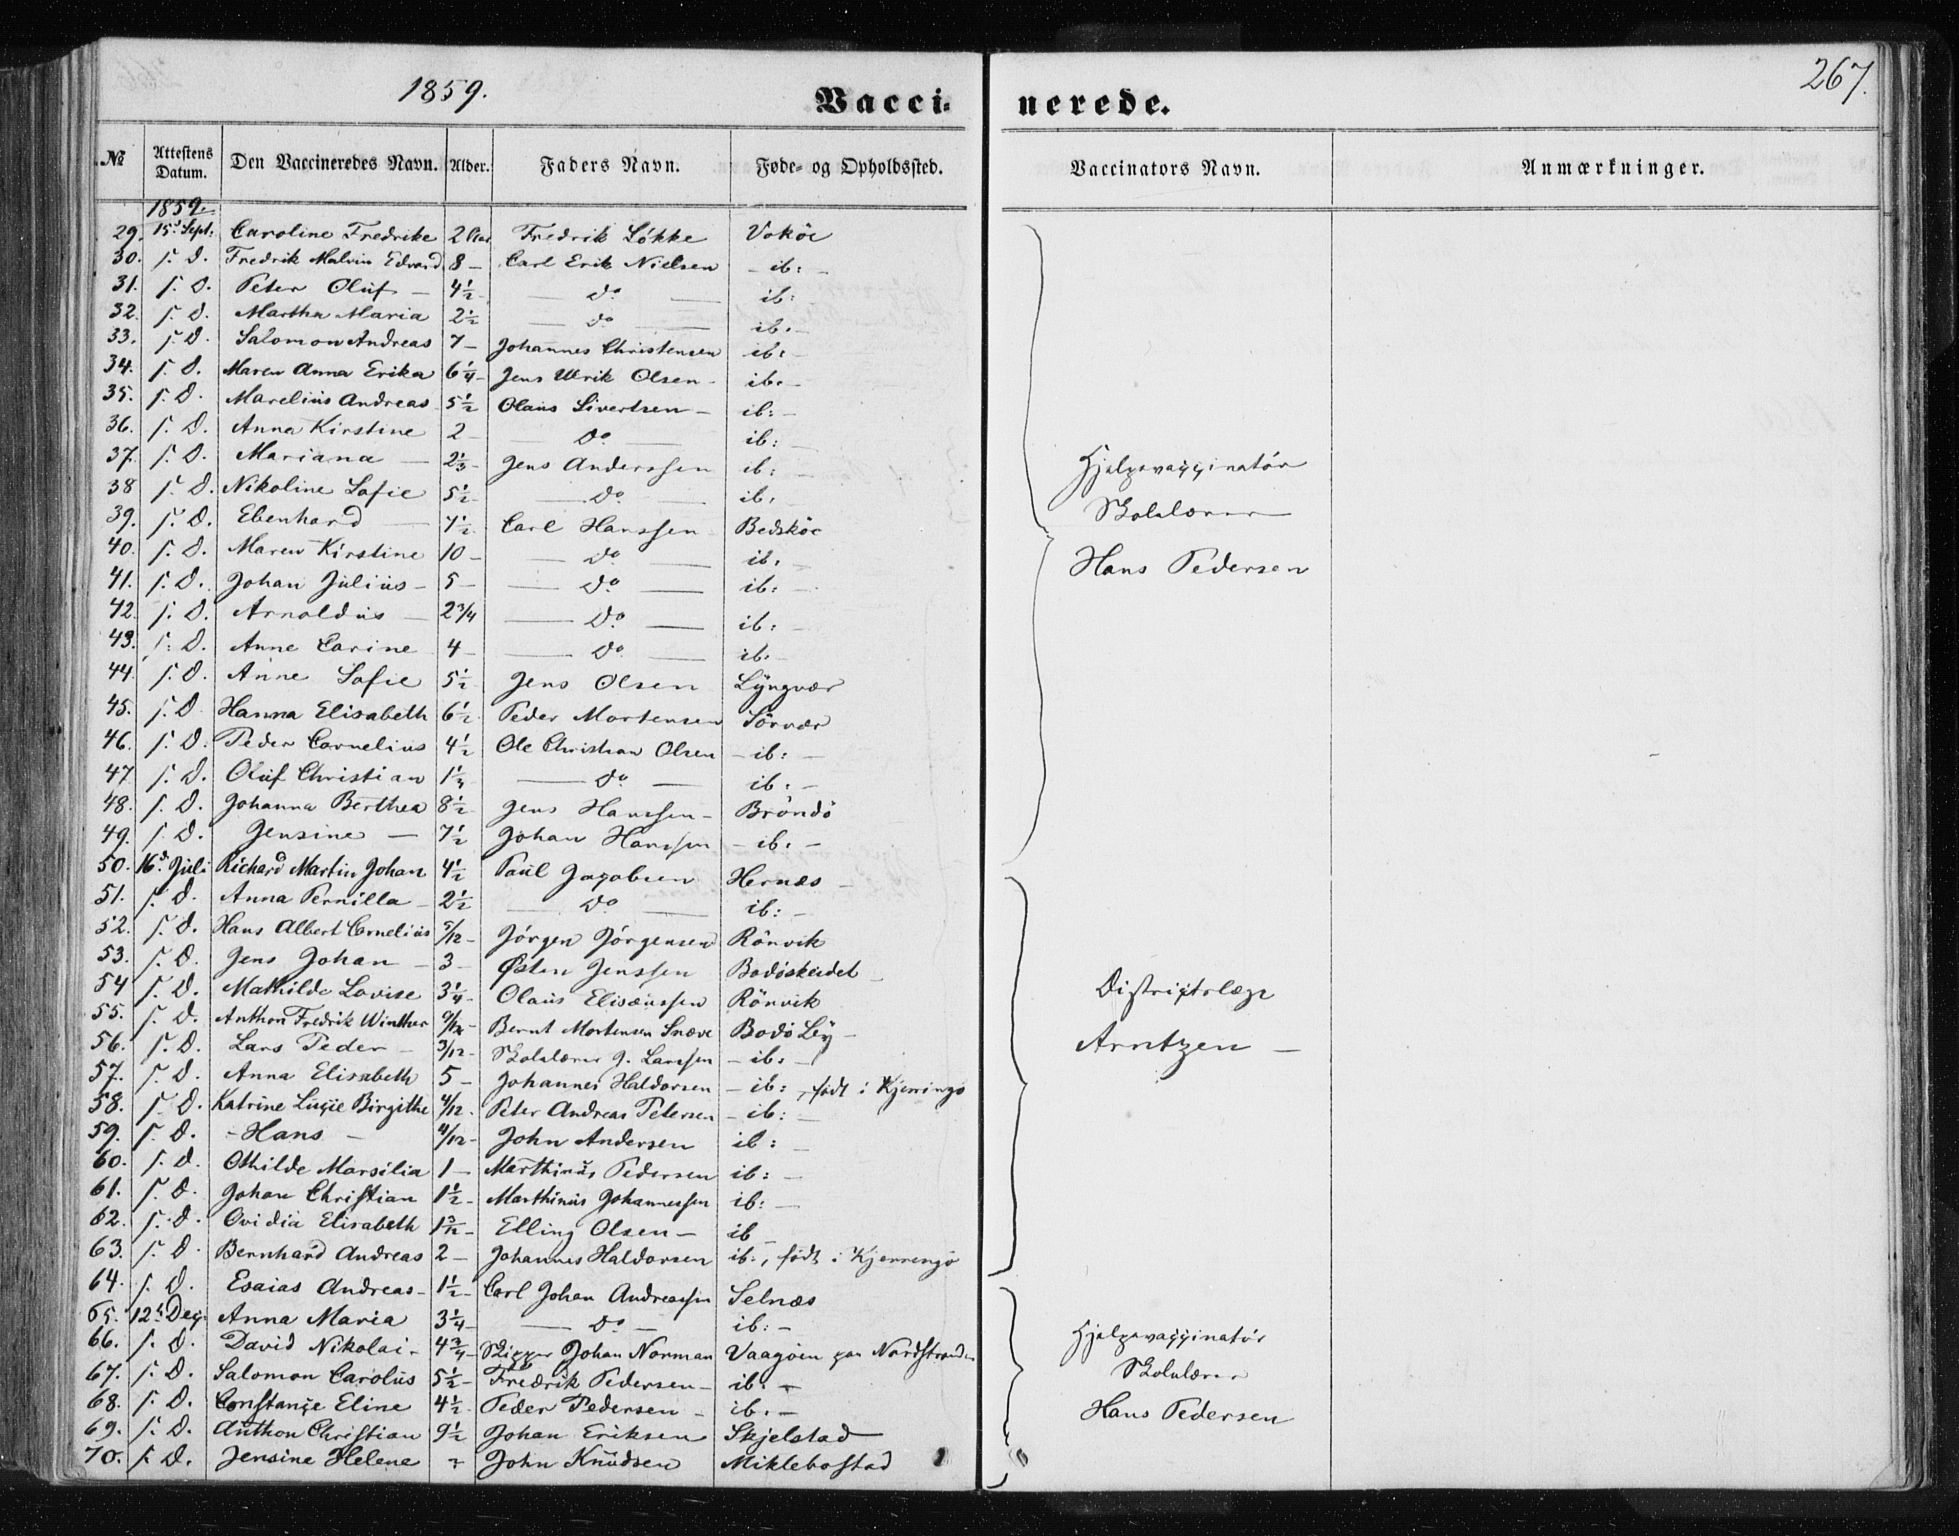 1859.
Vacci-
nerede.
267.
№ Attestens Datum. Den Vaccineredes Navn. Alder. Faders Navn. Føde- og Opholdssted. Vaccinators Navn. Anmærkninger.
1859.
29. 15d Sept. Caroline Fredrike 2 Aar Fredrik Løkke Voköe
30. s. D. Fredrik Malvin Edvard 8 – Carl Erik Nielsen – ib: –
31. s. D. Peter Oluf – 4½ – Do – ib:
32. s. D. Martha Maria 2½ – Do – ib. –
33. s. D. Salomon Andreas 7 – Johannes Christensen ib: –
34. s. D. Maren Anna Erika 6¼ – Jens Ulrik Olsen – ib. –
35. s. D. Marelius Andreas 5½ Olaus Sivertsen – ib: –
36. s. D. Anna Kirstine 2 – – Do – ib: –
37. s. D. Mariana – 2⅓ – Jens Anderssen ib: –
38 s. D. Nikoline Sofie 5½ – Do – ib.
39. s. D. Ebenhard – 7½ Carl Hanssen Bedsköe
40. s. D. Maren Kirstine 10 – – Do – ib. –
41. s. D. Johan Julius – 5 – – Do – ib: –
42. s. D. Arnoldus – 2¾ – Do – ib: –
43. s. D. Anne Carine 4 – – Do – ib. –
44. s. D. Anne Sofie 5½ Jens Olsen Lyngvær
45. s. D. Hanna Elisabeth 6½ Peder Mortensen Sörvær
46. s. D. Peder Cornelius 4½ Ole Christian Olsen – ib: –
47 s. D. Oluf Christian 1¼ – Do – ib: –
48. s. D. Johanna Berthea 8½ Jens Hanssen – Bröndö
49. s. D. Jensine – 7½ Johan Hanssen – ib. –
Hjelpevaccinatör
Skolelærer
Hans Pedersen
50. 16d Juli Richard Martin Johan 4½ Paul Jacobsen Hernæs –
51. s. D. Anna Pernilla – 2½ – Do – ib: –
52. s. D. Hans Albert Cornelius 5/12 – Jörgen Jörgensen Rönvik
53. s. D. Jens Johan – 3 – Østen Jenssen Bodöskeidet –
54 s. D. Mathilde Lovise 3¼ – Olaus Elisæussen Rönvik
55. s. D. Anthon Fredrik Winther 9/12 – Bernt Mortensen Snæve Bodö By –
56. s. D. Lars Peder – 3/12 – Skolelærer J. Larssen – ib: –
57. s. D. Anna Elisabeth 5 – Johannes Haldorsen – ib: – født i Kjerringö
58. s. D. Katrine Lucie Birgithe 4/12 . Peter Andreas Petersen – ib: –
59. s. D. – Hans – 4/12 – John Andersen ib: –
60. s. D. Othilde Marsilia 1 – Marthinus Pedersen ib: –
61. s. D. Johan Christian 1½ – Marthinus Johannessen ib: –
62. s. D. Ovidia Elisabeth 1 3/12 – Elling Olsen – ib –
63. s. D. Bernhard Andreas 2 – Johannes Haldorsen ib:, født i Kjerringö
Distriktslæge
Arntzen –
64. s. D. Esaias Andreas – 1½ – Carl Johan Andreassen Selnæs
65. 12te Dec. Anna Maria 3¼ – – Do – ib: –
66. s. D. David Nikolai – 4¾ – Skipper Johan Norman Vaagöen paa Nordstranden
67. s. D. Salomon Carolus 5½ – Fredrik Pedersen – ib. –
68. s. D. Constance Eline 4½ – Peder Pedersen – ib. –
69. s. D. Anthon Christian 9½ Johan Eriksen Skjelstad
70. s. D. Jensine Helene John Knudsen Miklebostad
Hjelpevaccinatör
Skolelærer
Hans Pedersen